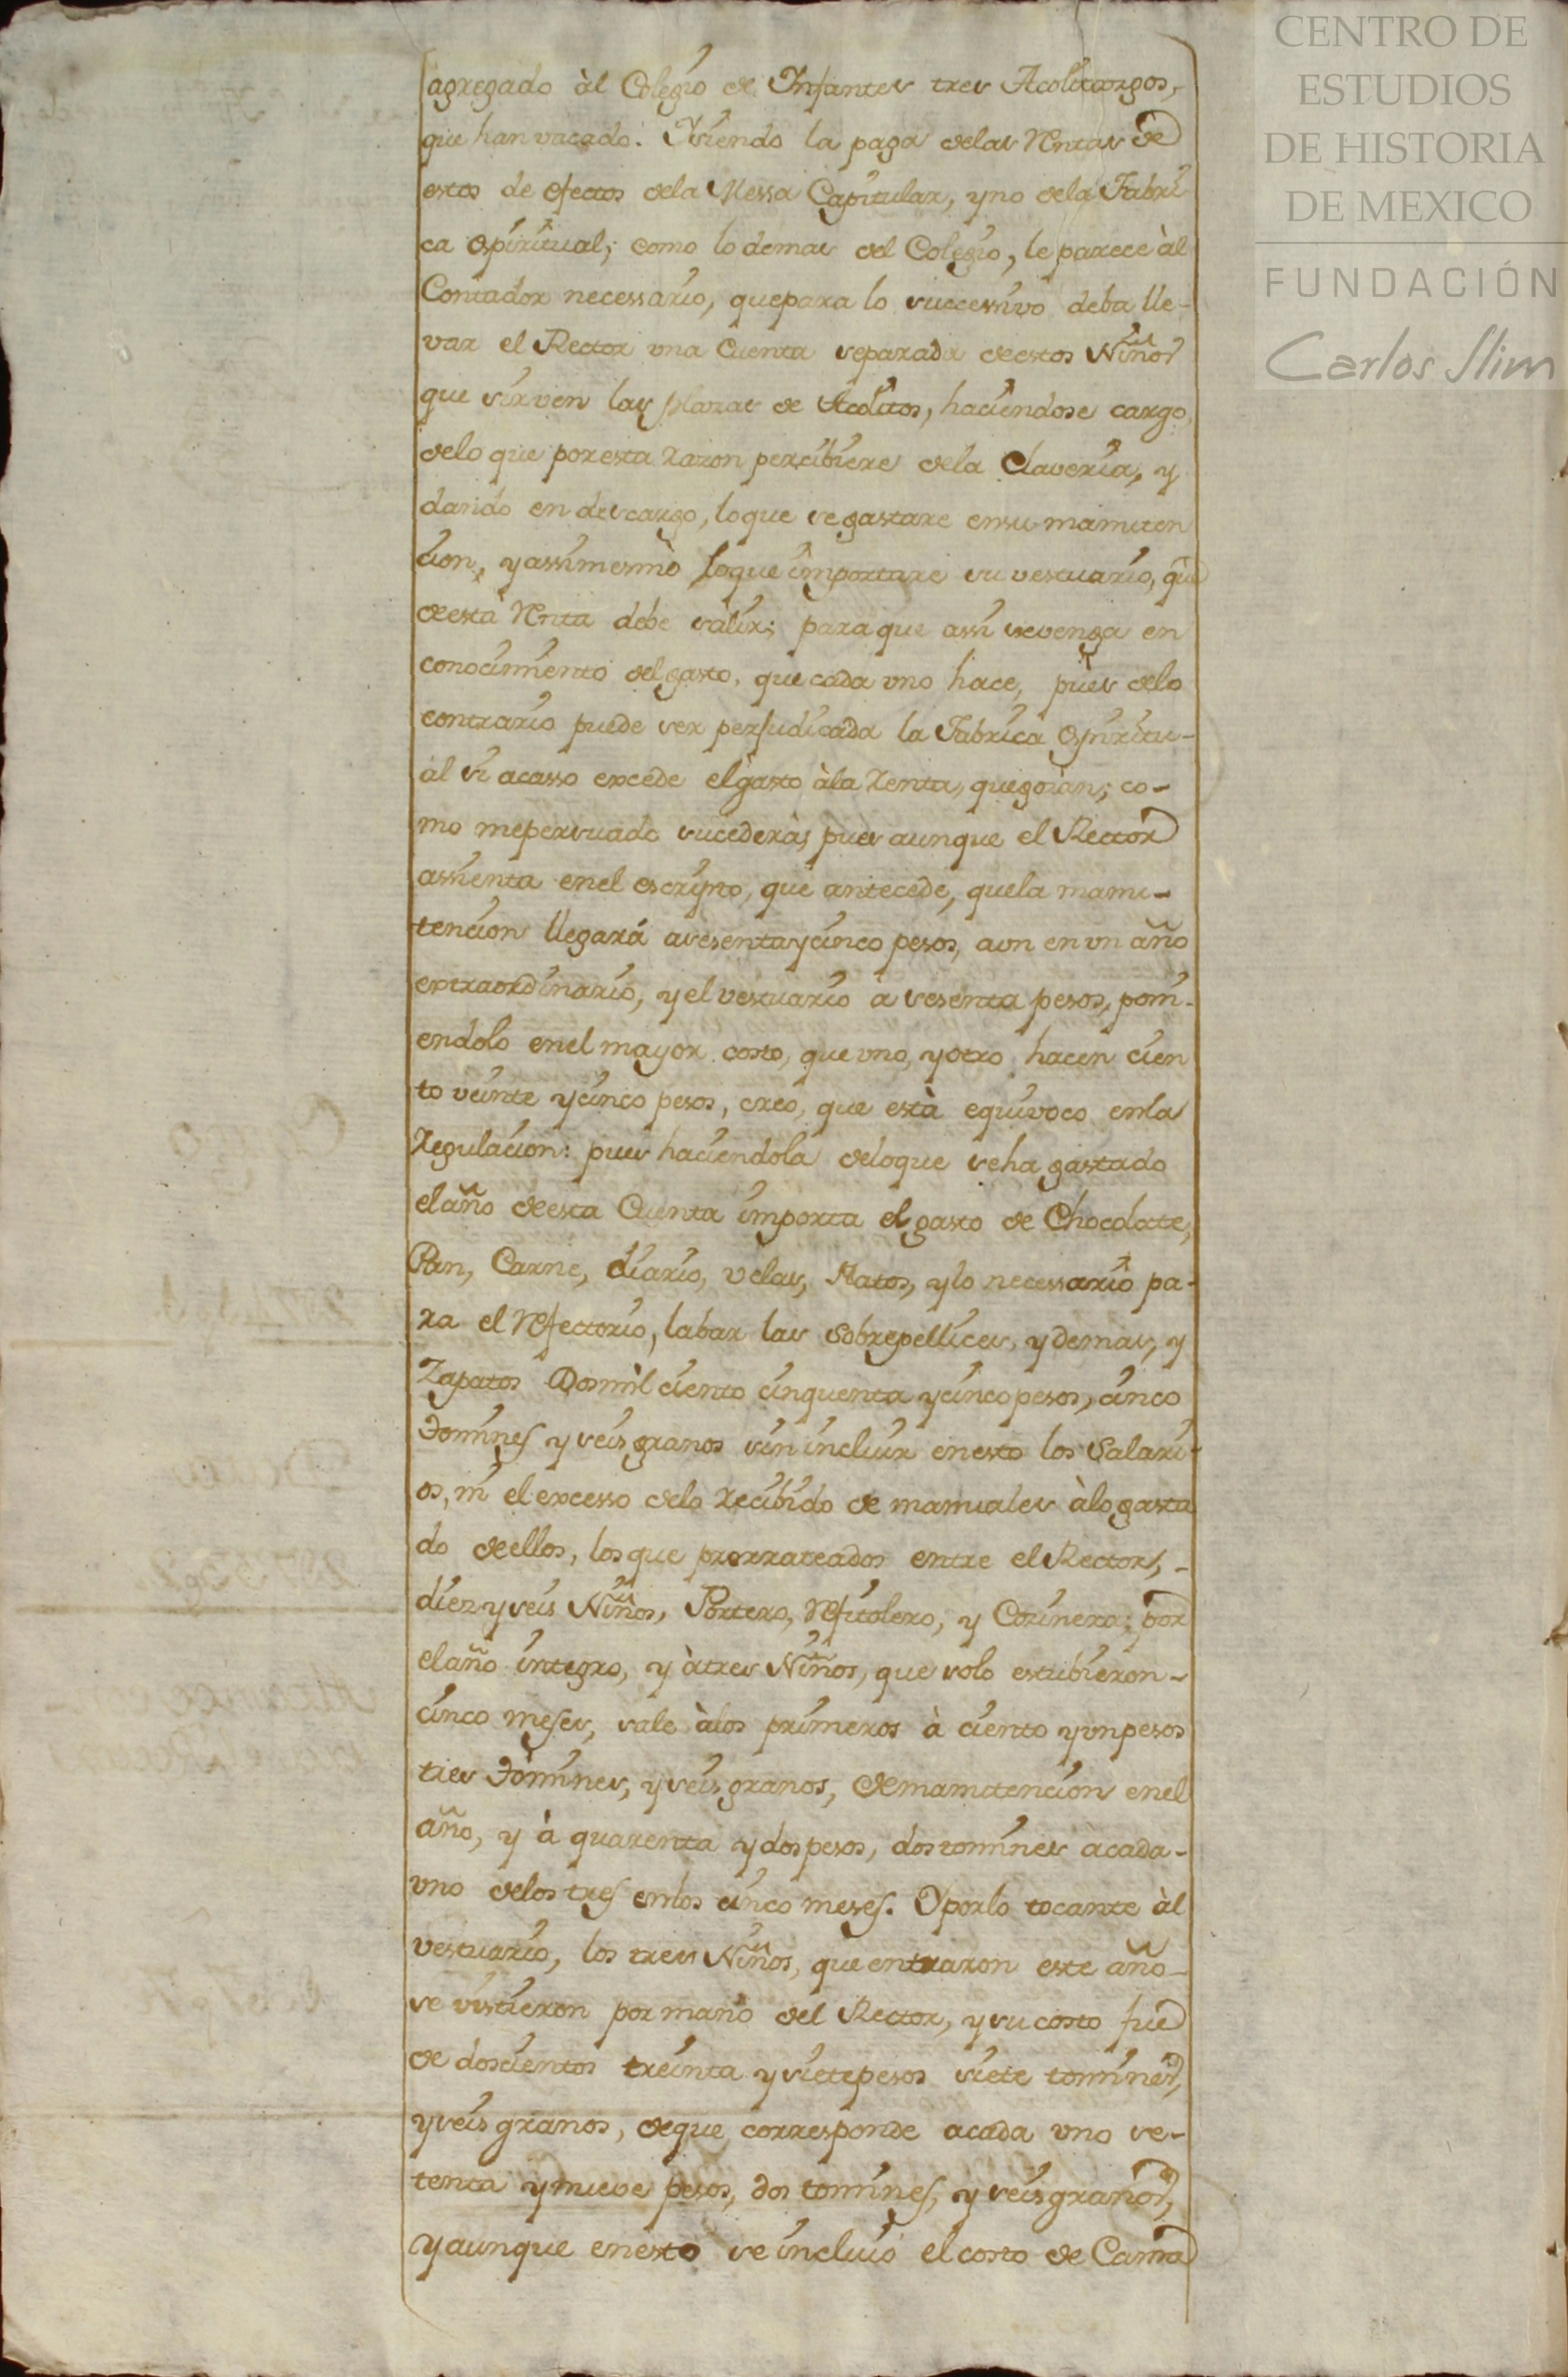 agregado àl Colegio de Infantes tres Acolitazgos,
que han vacado. Y siendo la paga delas Rentas de
estos de efectos dela Messa Capitular, y no dela Fabri
ca espiritual, como lo demas del Colegio, le parece àl
Contador necessario, quepara lo successivo deba lle-
var el Rector una Cuenta separada deestos Niños
que sirven las Plazas de Acolitos, haciendose cargo
delo que poresta razon percibiere dela Claveria, y
dando en descargo, loque se gastare ensu manuten
cion, y assimesmo loque importare su vestuario, que
deesta Renta debe salir; paraque assi sevenga en
conocimiento del gasto, que cada uno hace, pues delo
contrario puede ser perjudicada la Fabrica Espiritu-
al si acasso excede elgasto àla renta, quegozan; co-
mo mepersuado sucederà; pues aunque el Rector
assienta enel escripto, que antecede, quela manu-
tencion llegará asesentaycinco pesos, aun en un año
extraordinario, y el vestuario à sesenta pesos, poni-
endolo enel mayor costo, que uno, y otro hacen cien
to veinte ycinco pesos, creo, que està equivoco enla
regulacion: pues haciendola deloque seha gastado
elaño deesta Cuenta importa el gasto de Chocolate,
Pan, Carne, diario, velas, Platos, y lo necessario pa-
ra el Refectorio, labar las Sobrepellices, y demas, y
Zapatos Dosmil ciento cinquenta ycincopesos, cinco
tomines y seis granos sin incluir enesto los Salari-
os, ni el excesso delo recibido de manuales àlo gasta
do deellos, los que prorrateados entre el Rector, -
diez y seis Niños, Portero, Refitolero, y Cozinero; por
elaño integro, y àtres Niños, que solo estubieron-
cinco meses, sale àlos primeros à ciento yunpesos
tres tomines, y seis granos, demanutencion enel
año, y à quarenta ydos pesos, dos tomines àcada-
uno delos tres enlos cinco meses. Y porlo tocante àl
vestuario, los tres Niños, que entraron este año-
se vistieron por mano del Rector, y su costo fue
de doscientos treinta y sietepesos siete tomines,
y seis granos, deque corresponde acada uno se-
tenta y nueve pesos, dos tomines, y seis granos,
y aunque enesto se incluió el costo de Cama
CENTRO DE
ESTUDIOS
DE HISTORIA
DE MEXICO
FUNDACIÓN
Carlos Slim